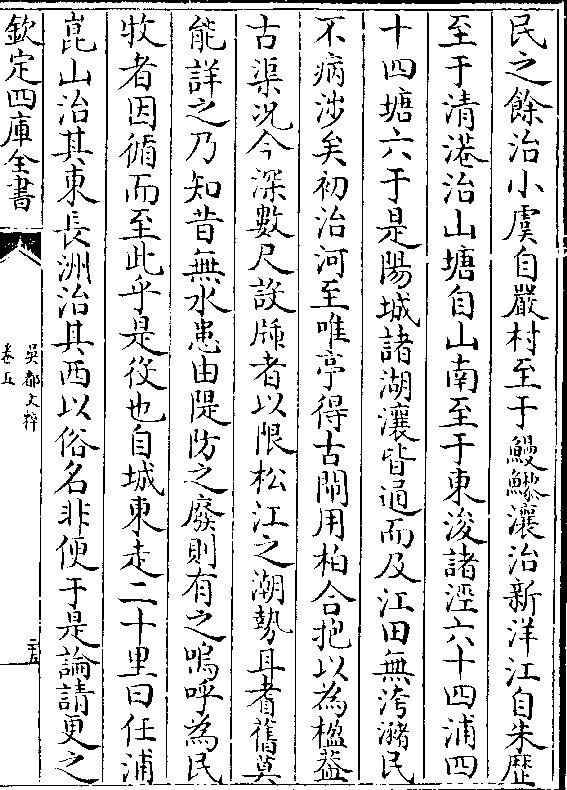 民之餘治小虞自嚴村至于鰻鱺瀼治新洋江自朱歷
至于清港治山塘自山南至于東浚諸涇六十四浦四
十四塘六于是陽城諸湖瀼皆通而及江田無洿瀦民
不病涉矣初治河至唯亭得古閘用柏合抱以為楹蓋
古渠况今深數尺設牐者以限松江之潮勢耳耆舊莫
能詳之乃知昔無水患由隄防之廢則有之嗚呼為民
牧者因循而至此乎是役也自城東走二十里曰任浦
崑山治其東長洲治其西以俗名非便于是論請更之
欽定四庫全書
吳都文粹
卷五
二十五